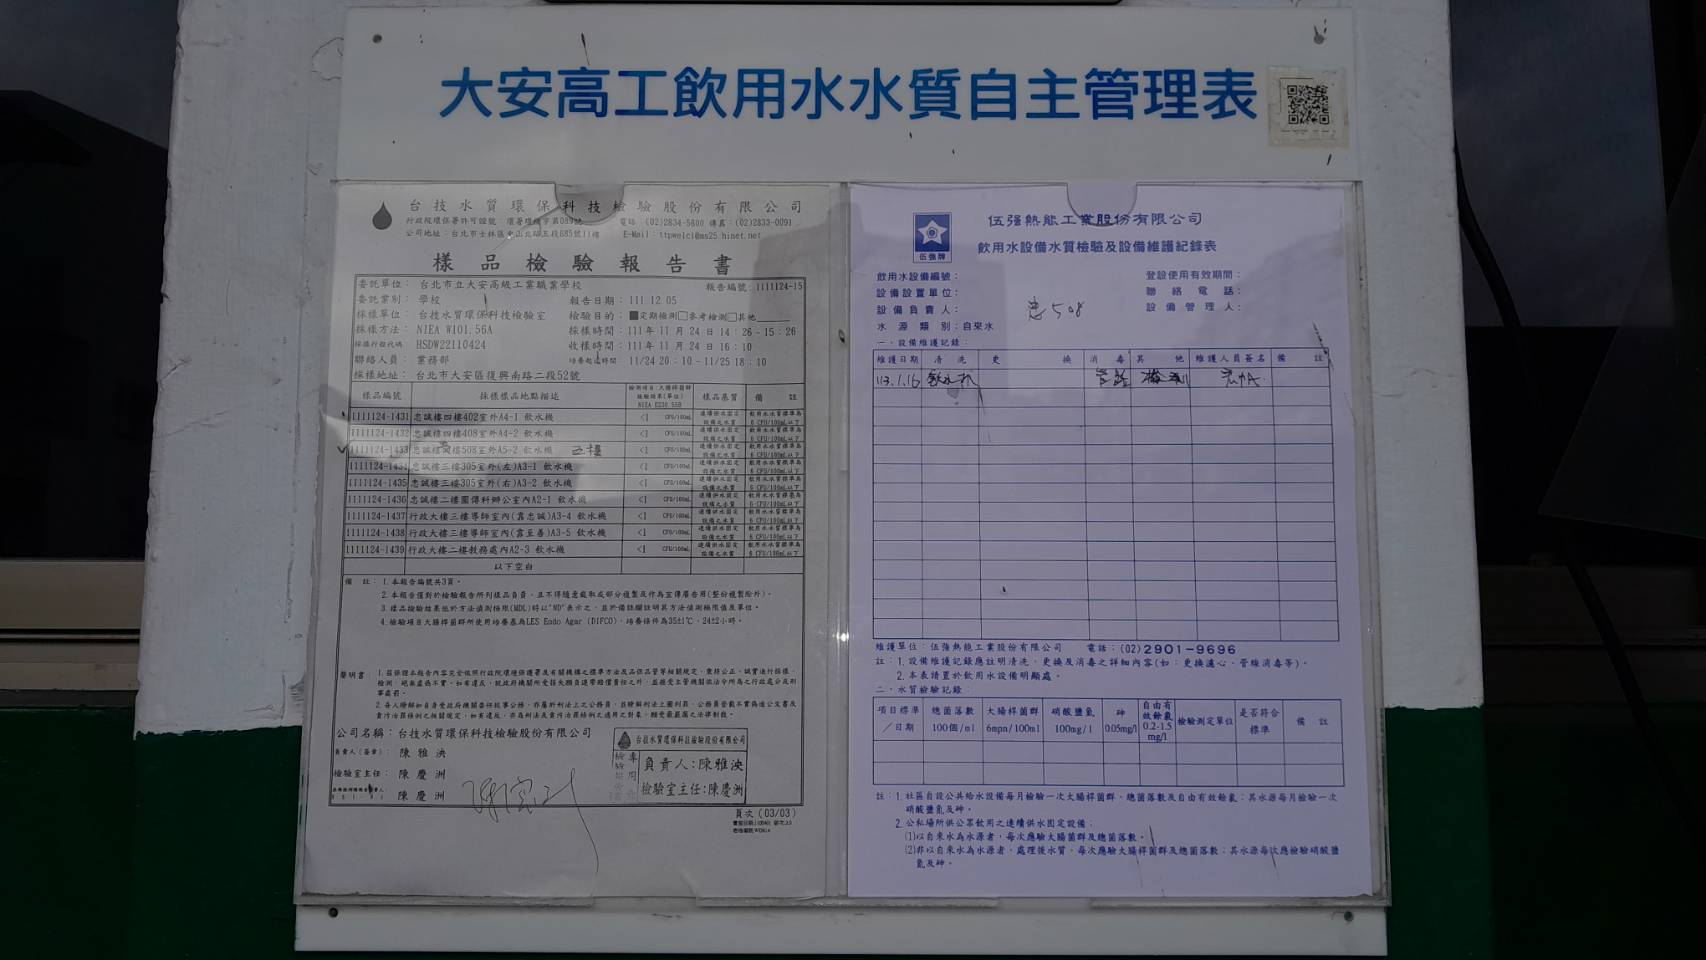 大安高工飲用水水質自主管理表
台技水質環保科技檢驗股份有限公司
行政院環保署許可證號：環署環檢字第089號 電話：(02)2834-5800 傳真：(02)2833-0091
公司地址：台北市士林區中山北路五段685號11樓 E-Mail：ttpwelci@ms25.hinet.net
樣品檢驗報告書
委託單位：台北市立大安高級工業職業學校 報告編號：1111124-15
委託業別：學校 報告日期：111.12.05
採樣單位：台技水質環保科技檢驗室 檢驗目的：■定期檢測□參考檢測□其他
採樣方法：NIEA W101.56A 採樣時間：111年11月24日14：26-15：26
採樣行程代碼 HSDW22110424 收樣時間：111年11月24日16：10
聯絡人員：業務部 培養起迄時間 11/24 20：10-11/25 18：10
採樣地址：台北市大安區復興南路二段52號
樣品編號 採樣樣品地點描述 檢測項目：大腸桿菌群 檢驗結果(單位) NIEA E230.55B 樣品基質 備註
1111124-1431 忠誠樓四樓402室外A4-1 飲水機 <1 CFU/100mL 連續供水固定設備之水質 飲用水水質標準為6 CFU/100mL以下
1111124-1432 忠誠樓四樓408室外A4-2 飲水機 <1 CFU/100mL 連續供水固定設備之水質 飲用水水質標準為6 CFU/100mL以下
1111124-1433 忠誠樓四樓508室外A5-2 飲水機 五樓 <1 CFU/100mL 連續供水固定設備之水質 飲用水水質標準為6 CFU/100mL以下
1111124-1434 忠誠樓三樓305室外(左)A3-1 飲水機 <1 CFU/100mL 連續供水固定設備之水質 飲用水水質標準為6 CFU/100mL以下
1111124-1435 忠誠樓三樓305室外(右)A3-2 飲水機 <1 CFU/100mL 連續供水固定設備之水質 飲用水水質標準為6 CFU/100mL以下
1111124-1436 忠誠樓二樓圖傳科辦公室內A2-1 飲水機 <1 CFU/100mL 連續供水固定設備之水質 飲用水水質標準為6 CFU/100mL以下
1111124-1437 行政大樓三樓導師室內(靠忠誠)A3-4 飲水機 <1 CFU/100mL 連續供水固定設備之水質 飲用水水質標準為6 CFU/100mL以下
1111124-1438 行政大樓三樓導師室內(靠至善)A3-5 飲水機 <1 CFU/100mL 連續供水固定設備之水質 飲用水水質標準為6 CFU/100mL以下
1111124-1439 行政大樓二樓教務處內A2-3 飲水機 <1 CFU/100mL 連續供水固定設備之水質 飲用水水質標準為6 CFU/100mL以下
以下空白
備 註：1.本報告編號共3頁。
2.本報告僅對於檢驗報告所列樣品負責，且不得隨意截取或部分複製及作為宣傳廣告用(整份複製除外)。
3.樣品檢驗結果低於方法偵測極限(MDL)時以"ND"表示之，並於備註欄註明其方法偵測極限值及單位。
4.檢驗項目大腸桿菌群所使用培養基為LES Endo Agar (DIFCO)，培養條件為35±1℃，24±2小時。
聲明書 1.茲保證本報告內容完全依照行政院環境保護署及有關機構之標準方法及品保品管等相關規定，秉持公正、誠實進行採樣、
檢測，絕無虛偽不實，如有違反，就政府機關所受損失願負連帶賠償責任之外，並接受主管機關依法令所為之行政處分及刑
事處罰。
2.吾人瞭解如自身受政府機關委任從事公務，亦屬於刑法上之公務員，並瞭解刑法上圖利罪、公務員登載不實偽造公文書及
貪污治罪條例之相關規定，如有違反，亦為刑法及貪污治罪條例之適用之對象，願受最嚴厲之法律制裁。
公司名稱：台技水質環保科技檢驗股份有限公司
負責人(簽章)：陳雅泱
檢驗室主任：陳慶洲
陳慶洲
台技水質環保科技檢驗股份有限公司
負責人：陳雅泱
檢驗室主任：陳慶洲
頁次(03/03)
伍強牌
伍強熱能工業股份有限公司
飲用水設備水質檢驗及設備維護紀錄表
飲用水設備編號： 登設使用有效期間：
設備設置單位： 聯絡電話：
設備負責人： 忠508 設備管理人：
水源類別：自來水
一、設備維護記錄：
維護日期 清洗 更換 消毒 其他 維護人員簽名 備註
113.1.16 飲水機 管路 檢測
維護單位：伍強熱能工業股份有限公司 電話：(02)2901-9696
註：1.設備維護記錄應註明清洗、更換及消毒之詳細內容(如：更換濾心、管線消毒等)。
2.本表請置於飲用水設備明顯處。
二、水質檢驗記錄：
項目標準／日期 總菌落數 100個/ml 大腸桿菌群 6mpn/100ml 硝酸鹽氮 100mg/l 砷 0.05mg/l 自由有效餘氯 0.2-1.5 mg/l 檢驗測定單位 是否符合標準 備註
註：1.社區自設公共給水設備每月檢驗一次大腸桿菌群、總菌落數及自由有效餘氯；其水源每月檢驗一次
硝酸鹽氮及砷。
2.公私場所供公眾飲用之連續供水固定設備：
(1)以自來水為水源者，每次應驗大腸菌群及總菌落數。
(2)非以自來水為水源者，處理後水質，每次應驗大腸桿菌群及總菌落數；其水源每次應檢驗硝酸鹽
氮及砷。